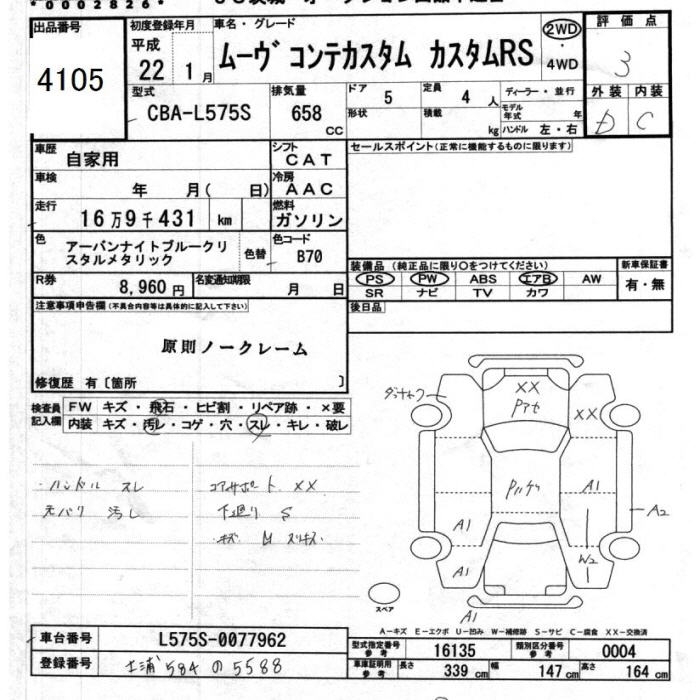 *0002826*
出品番号
4105
初度登録年月
平成
22 1月
車名・グレード
ムーヴ コンテカスタム カスタムRS
2WD
・
4WD
評価点
3
外装 内装
D C
型式
CBA-L575S
排気量
658
CC
ドア 5
定員 4 人
形状
積載 kg
ディーラー・並行
モデル年式 年
ハンドル 左・右
車歴 自家用
シフト CAT
車検 年 月( 日)
冷房 AAC
走行 16万9千431 km
燃料 ガソリン
色 アーバンナイトブルークリスタルメタリック
色替
色コード B70
R券 8,960円
名変通知期限 月 日
セールスポイント(正常に機能するものに限ります)
装備品 (純正品に限り○をつけてください)
PS PW ABS エアB AW
SR ナビ TV カワ
新車保証書
有・無
後日品
注意事項申告欄(不具合内容等は具体的に記入して下さい)
原則ノークレーム
修復歴 有〔箇所 〕
検査員記入欄
FW キズ・飛石・ヒビ割・リペア跡・×要
内装 キズ・汚レ・コゲ・穴・スレ・キレ・破レ
ハンドル スレ
元バリ 汚レ
コアサポート XX
下廻り S
XX
XX
A1
A1
A1
A1
A2
W2
スペア
A1
A-キズ E-エクボ U-凹み W-補修跡 S-サビ C-腐食 XX-交換済
車台番号 L575S-0077962
登録番号 土浦 584 の 5588
型式指定番号 参考 16135
類別区分番号 参考 0004
車庫証明用 参考 長さ 339 cm 幅 147 cm 高さ 164 cm